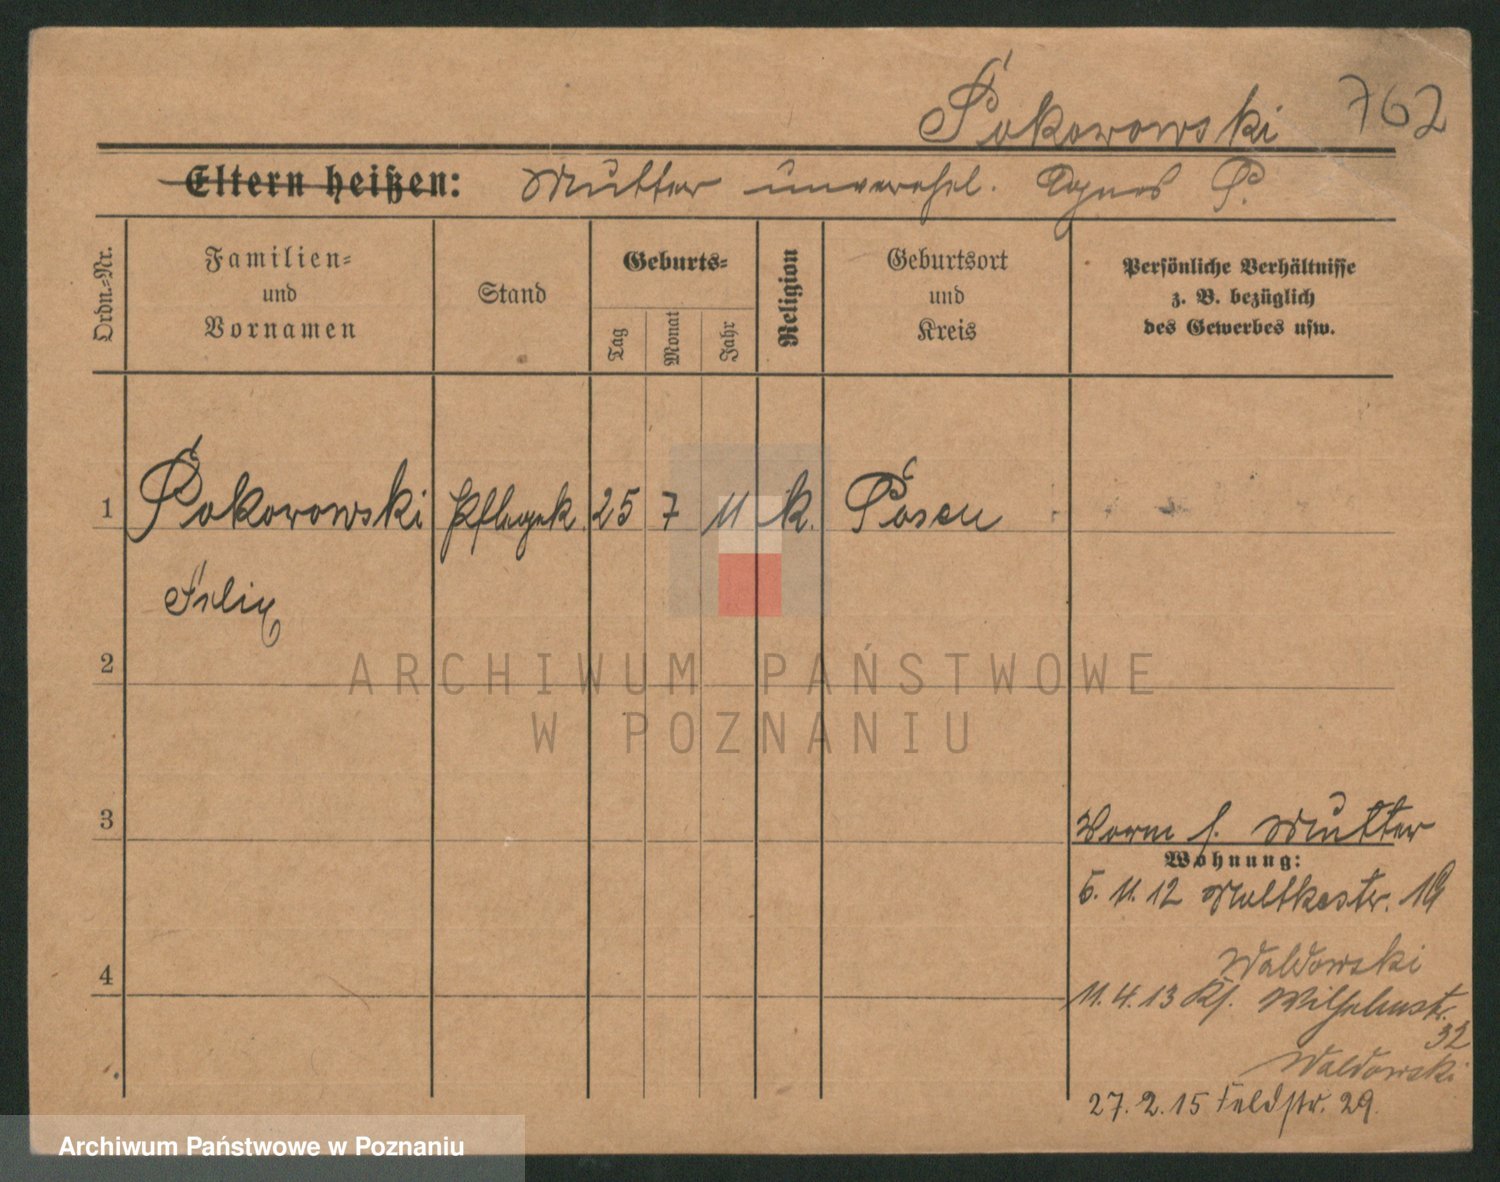 Pokorowski 762
Eltern heißen: Mutter unverehel. Agnes P.
Ordn.-Nr.
Familien-
und
Vornamen
Stand
Geburts-
Tag
Monat
Jahr
Religion
Geburtsort
und
Kreis
Persönliche Verhältnisse
z. B. bezüglich
des Gewerbes usw.
1 Pokorowski Pflegek. 25 7 11 k. Posen
Felix
2
ARCHIWUM PAŃSTWOWE
W POZNANIU
3
Vorm s. Mutter
Wohnung:
5. 11. 12 Moltkestr. 19
4
Waldowski
11. 4. 13 Kl. Wilhelmstr.
32
Waldowski
27. 2. 15 Feldstr. 29.
Archiwum Państwowe w Poznaniu